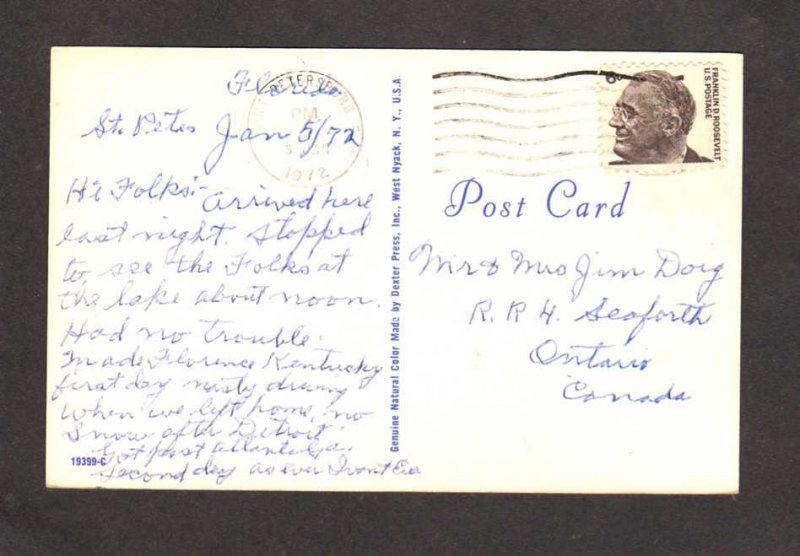 Florida
St. Petes Jan 5/72
Hi Folks:-
Arrived here
last night. Stopped
to see the Folks at
the lake about noon.
Had no trouble.
Made Florence Kentucky
first day nasty driving
when we left home, no
snow after Detroit
Got past Atlanta Ga.
second day as ever
19399-C
Genuine Natural Color Made by Dexter Press, Inc., West Nyack, N. Y., U.S.A.
PETERSBURG
PM
5 JAN
1972
6¢
FRANKLIN D. ROOSEVELT
U.S. POSTAGE
Post Card
Mr & Mrs Jim Doig
R. R 4. Seaforth
Ontario
Canada